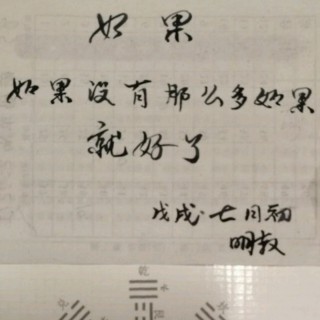 如果
如果没有那么多如果
就好了
戊戌·七月初
明教
乾